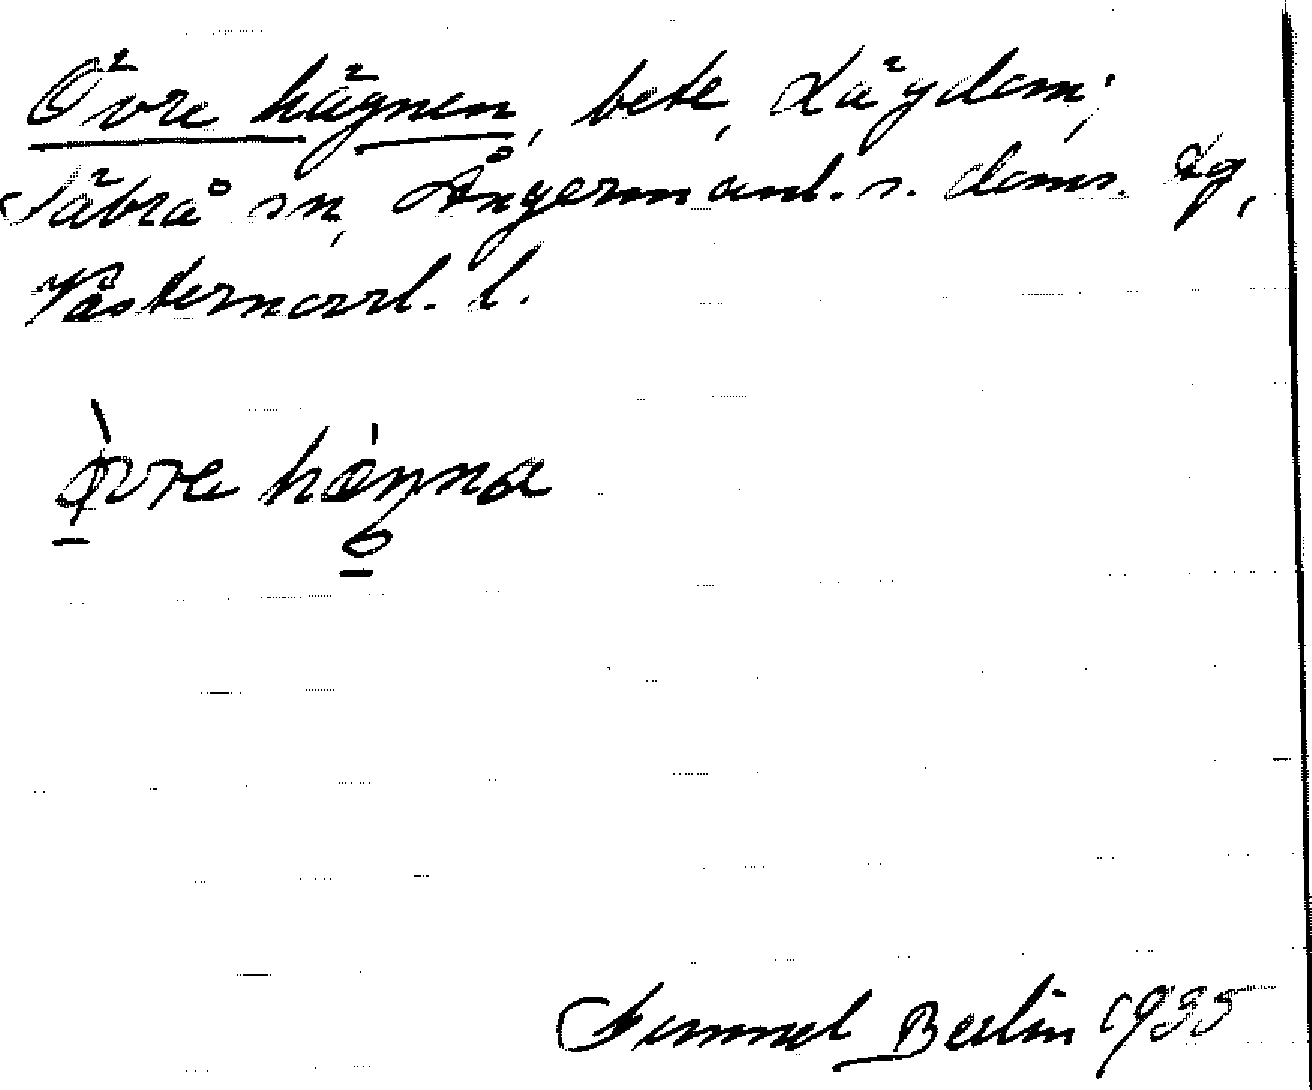 Övre hägnen, bete, Lägdom;
Säbrå sn, Ångermanl. s. doms. tg,
Västernorrl. l.
Gunnel Berlin 1935